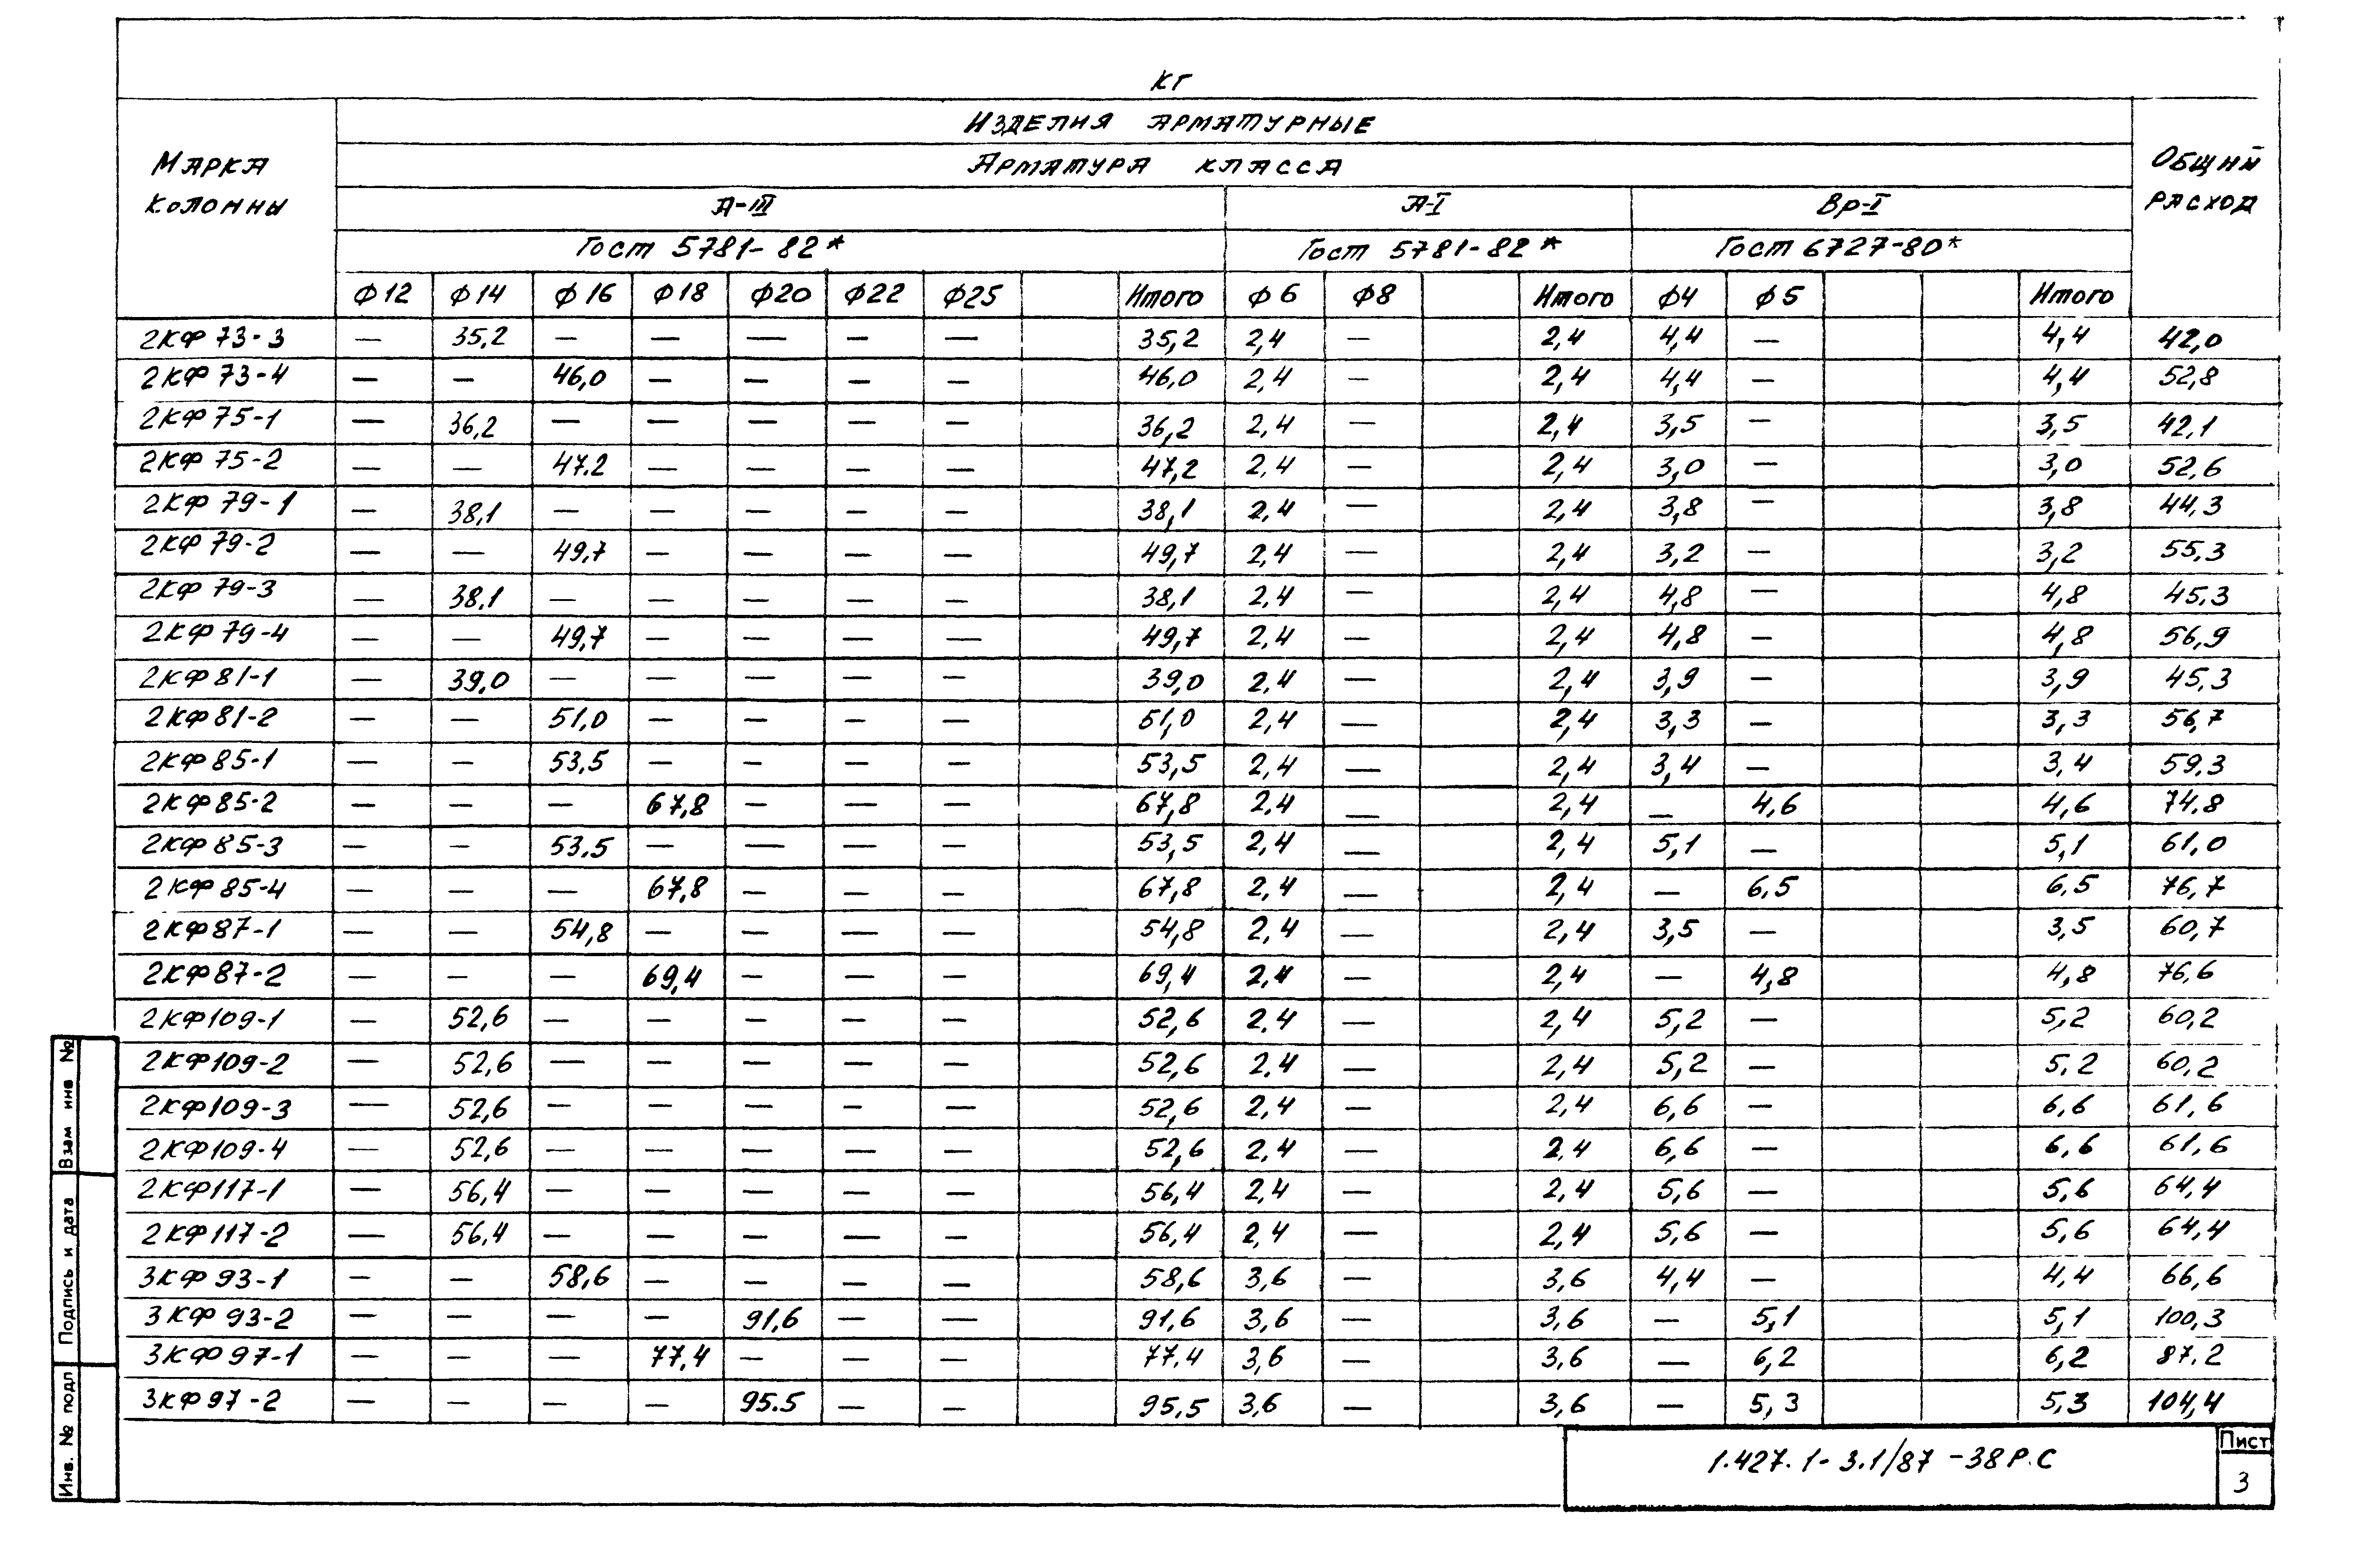 кг
Марка колонны
Изделия арматурные
Общий расход
Арматура класса
А-III А-I Вр-I
Гост 5781-82* Гост 5781-82* Гост 6727-80*
Ф12 Ф14 Ф16 Ф18 Ф20 Ф22 Ф25 Итого Ф6 Ф8 Итого Ф4 Ф5 Итого
2КФ73-3 — 35,2 — — — — — 35,2 2,4 — 2,4 4,4 — 4,4 42,0
2КФ73-4 — — 46,0 — — — — 46,0 2,4 — 2,4 4,4 — 4,4 52,8
2КФ75-1 — 36,2 — — — — — 36,2 2,4 — 2,4 3,5 — 3,5 42,1
2КФ75-2 — — 47.2 — — — — 47,2 2,4 — 2,4 3,0 — 3,0 52,6
2КФ79-1 — 38,1 — — — — — 38,1 2,4 — 2,4 3,8 — 3,8 44,3
2КФ79-2 — — 49,7 — — — — 49,7 2,4 — 2,4 3,2 — 3,2 55,3
2КФ79-3 — 38.1 — — — — — 38,1 2,4 — 2,4 4,8 — 4,8 45,3
2КФ79-4 — — 49,7 — — — — 49,7 2,4 — 2,4 4,8 — 4,8 56,9
2КФ81-1 — 39,0 — — — — — 39,0 2,4 — 2,4 3,9 — 3,9 45,3
2КФ81-2 — — 51,0 — — — — 51,0 2,4 — 2,4 3,3 — 3,3 56,7
2КФ85-1 — — 53.5 — — — — 53,5 2,4 — 2,4 3,4 — 3,4 59,3
2КФ85-2 — — — 67,8 — — — 67,8 2.4 — 2,4 — 4,6 4,6 74.8
2КФ85-3 — — 53.5 — — — — 53,5 2,4 — 2,4 5,1 — 5,1 61,0
2КФ85-4 — — — 67,8 — — — 67,8 2,4 — 2,4 — 6,5 6.5 76,7
2КФ87-1 — — 54,8 — — — — 54,8 2,4 — 2,4 3,5 — 3,5 60,7
2КФ87-2 — — — 69,4 — — — 69,4 2,4 — 2,4 — 4,8 4,8 76,6
2КФ109-1 — 52,6 — — — — — 52,6 2.4 — 2,4 5,2 — 5,2 60,2
2КФ109-2 — 52,6 — — — — — 52,6 2.4 — 2,4 5,2 — 5,2 60,2
2КФ109-3 — 52,6 — — — — — 52,6 2,4 — 2,4 6,6 — 6,6 61,6
2КФ109-4 — 52,6 — — — — — 52,6 2,4 — 2.4 6,6 — 6,6 61,6
2КФ117-1 — 56,4 — — — — — 56,4 2,4 — 2,4 5,6 — 5,6 64,4
2КФ117-2 — 56,4 — — — — — 56,4 2,4 — 2,4 5,6 — 5,6 64,4
3КФ93-1 — — 58,6 — — — — 58,6 3,6 — 3,6 4,4 — 4,4 66,6
3КФ93-2 — — — — 91,6 — — 91,6 3,6 — 3,6 — 5,1 5,1 100,3
3КФ97-1 — — — 77,4 — — — 77.4 3,6 — 3,6 — 6,2 6,2 87.2
3КФ97-2 — — — — 95.5 — — 95,5 3,6 — 3,6 — 5,3 5,3 104,4
Взам инв №
Подпись и дата
Инв. № подл
1.427.1-3.1/87-38Р.С
Лист
3